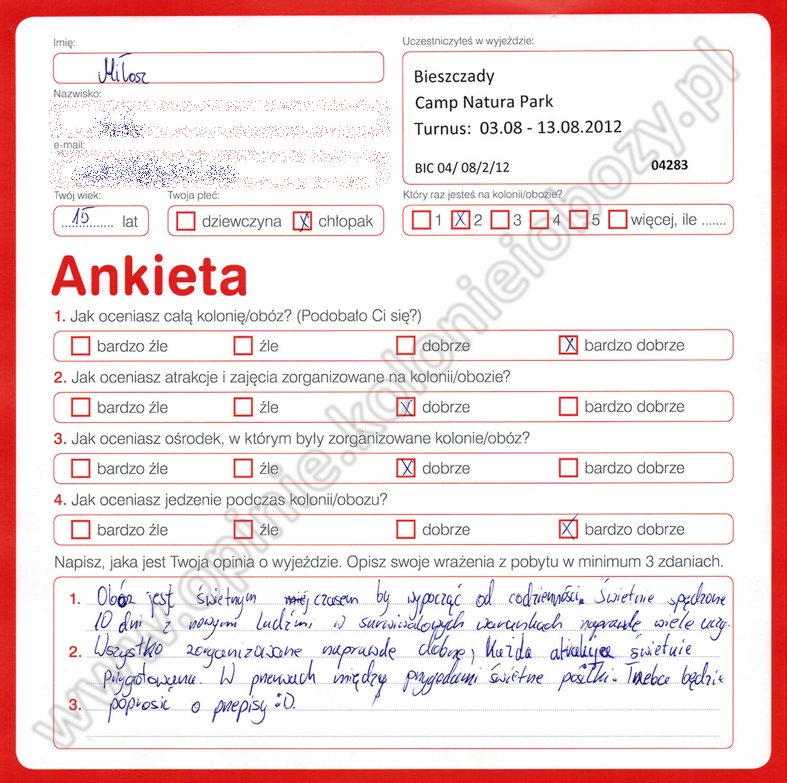 Imię:
Miłosz
Nazwisko:
e-mail:
Twój wiek:
15 lat
Twoja płeć:
dziewczyna X chłopak
Uczestniczyłeś w wyjeździe:
Bieszczady
Camp Natura Park
Turnus: 03.08 - 13.08.2012
BIC 04/ 08/2/12 04283
Który raz jesteś na kolonii/obozie?
1 X 2 3 4 5 więcej, ile .......
Ankieta
1. Jak oceniasz całą kolonię/obóz? (Podobało Ci się?)
bardzo źle źle dobrze X bardzo dobrze
2. Jak oceniasz atrakcje i zajęcia zorganizowane na kolonii/obozie?
bardzo źle źle X dobrze bardzo dobrze
3. Jak oceniasz ośrodek, w którym były zorganizowane kolonie/obóz?
bardzo źle źle X dobrze bardzo dobrze
4. Jak oceniasz jedzenie podczas kolonii/obozu?
bardzo źle źle dobrze X bardzo dobrze
Napisz, jaka jest Twoja opinia o wyjeździe. Opisz swoje wrażenia z pobytu w minimum 3 zdaniach.
1. Obóz jest świetnym czasem by wypocząć od codzienności. Świetnie spędzone
10 dni z nowymi ludźmi w surwiwalowych warunkach naprawdę wiele uczy.
2. Wszystko zorganizowane naprawdę dobrze, Każda atrakcja świetnie
przygotowana. W przerwach między przygodami świetne posiłki. Trzeba będzie
3. poprosić o przepisy :D.
www.opinie.kolonieiobozy.pl